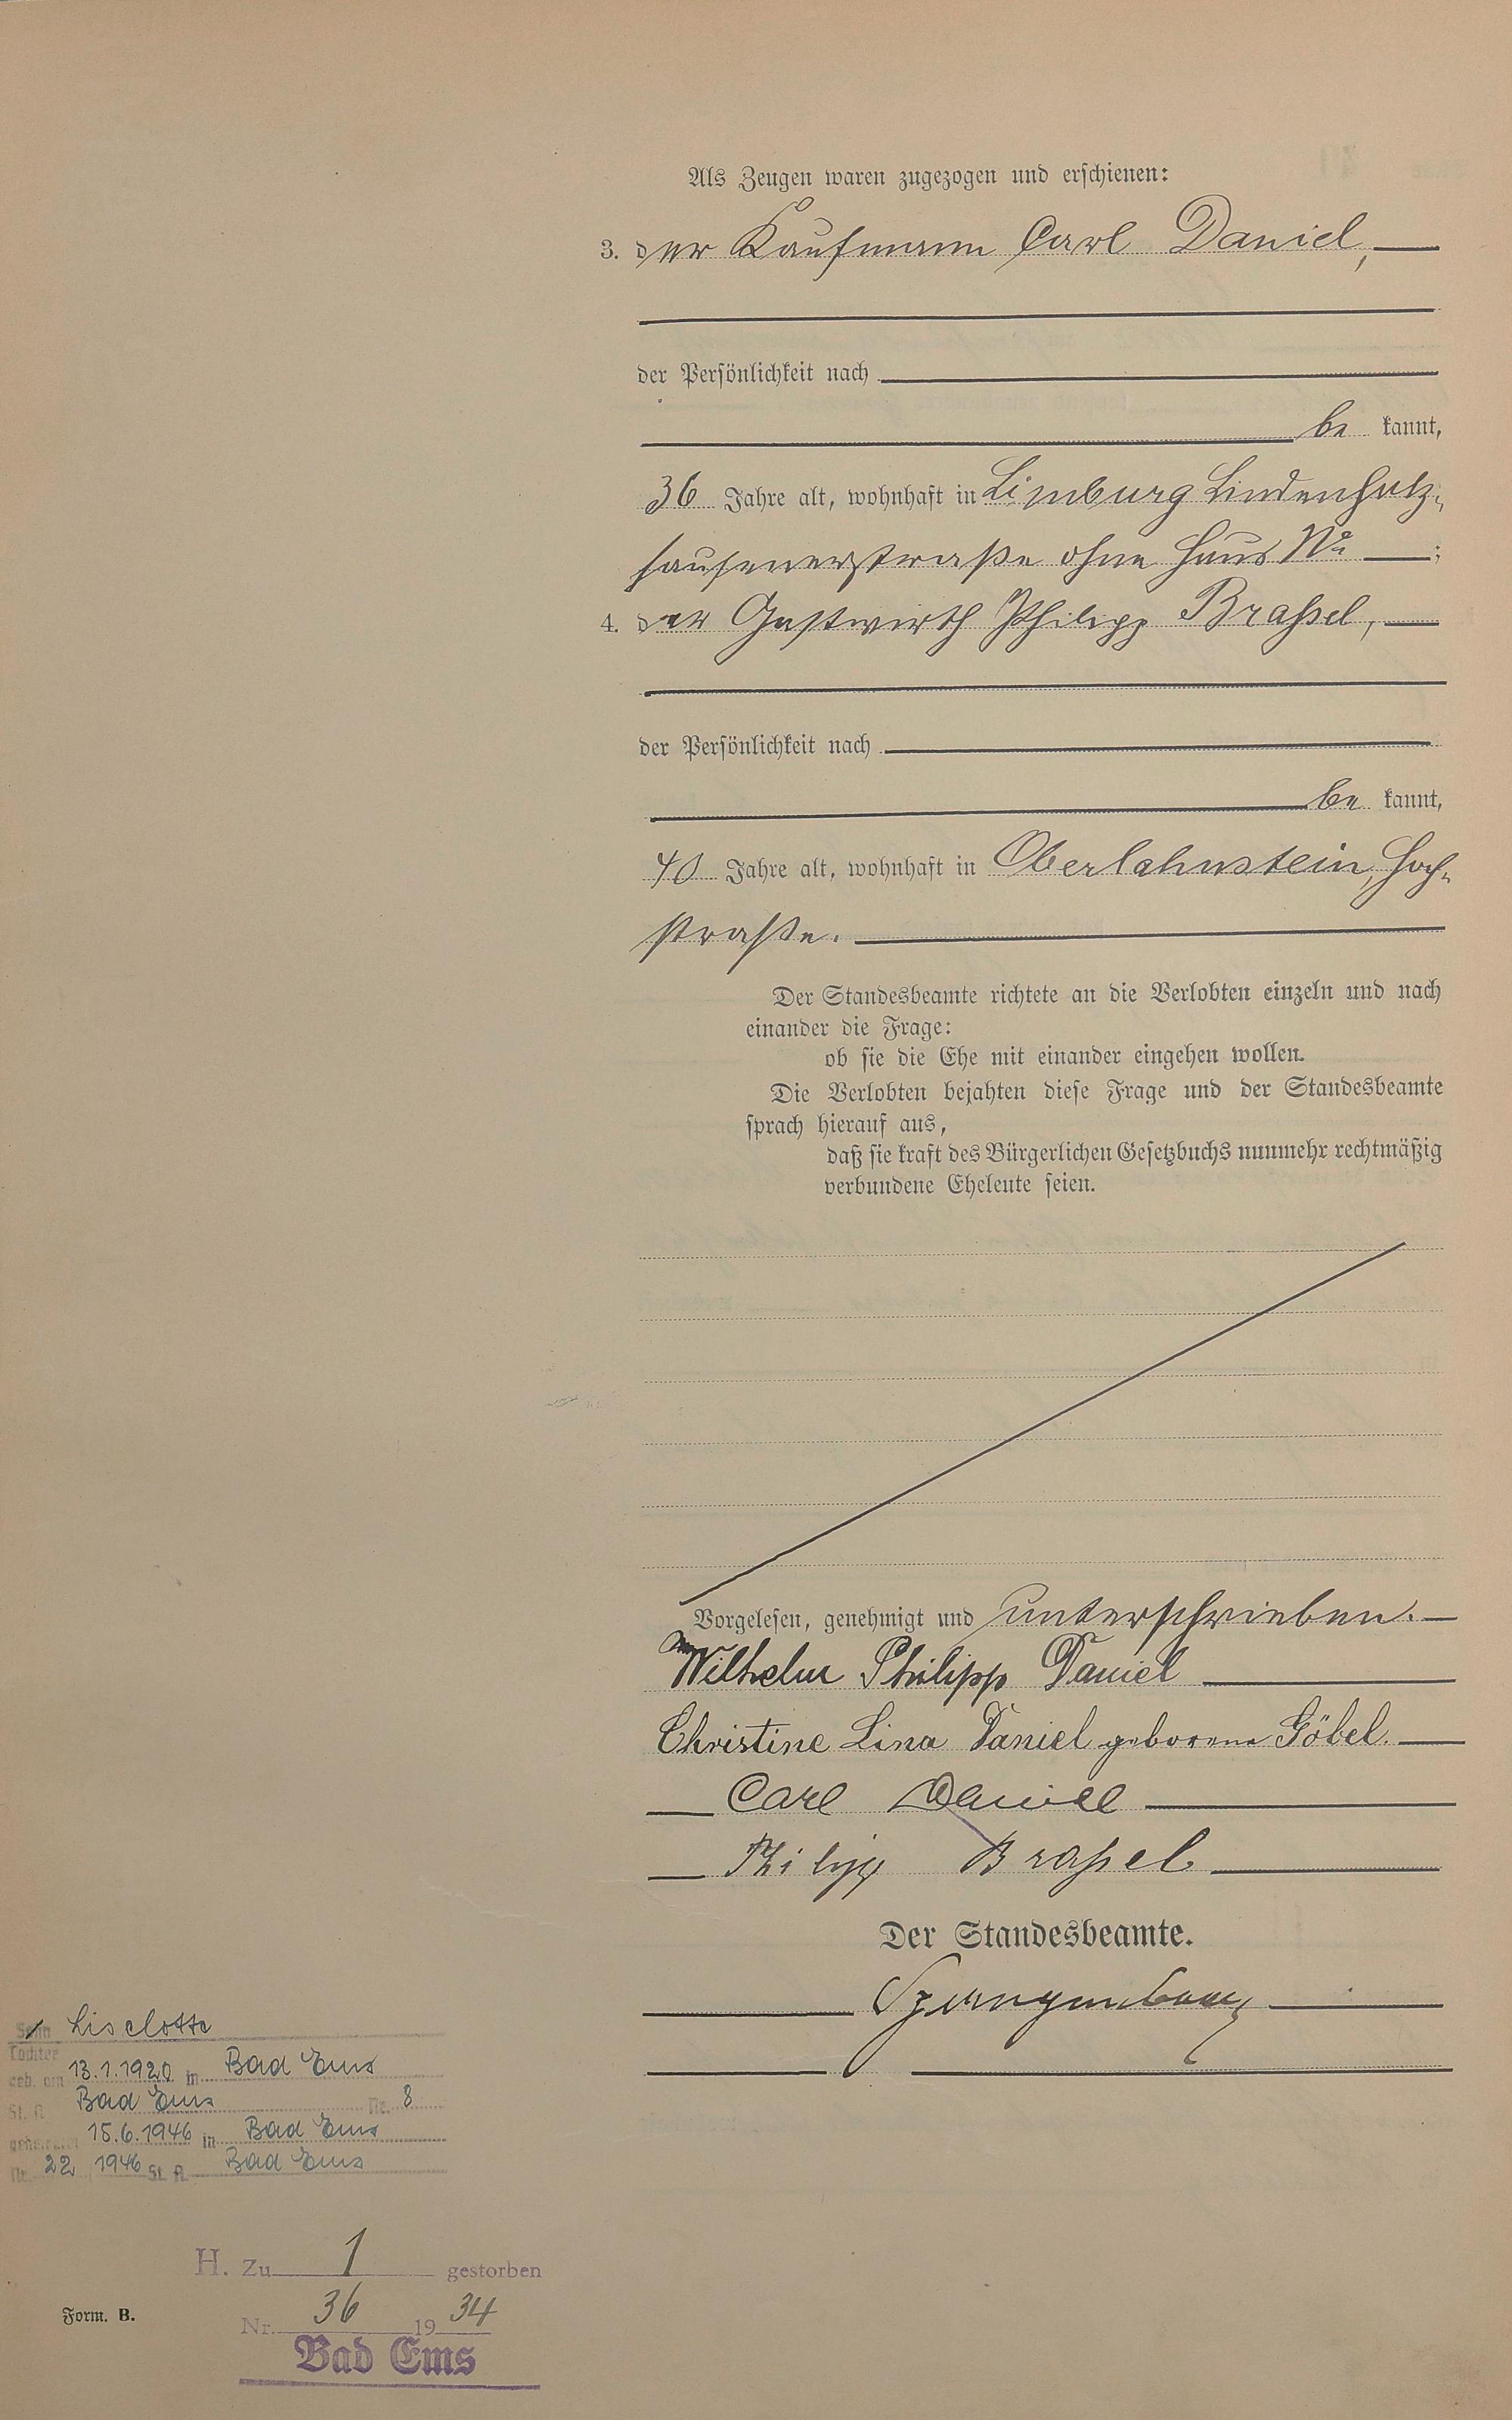 Als Zeugen waren zugezogen und erschienen:
3. der Kaufmann Carl Daniel,
der Persönlichkeit nach
be kannt,
36 Jahre alt, wohnhaft in Limburg Lindenholz-
hausenerstraße ohne Haus No ;
4. der Gastwirth Philipp Braßel,
der Persönlichkeit nach
be kannt,
40 Jahre alt, wohnhaft in Oberlahnstein, Hoch-
straße.
Der Standesbeamte richtete an die Verlobten einzeln und nach
einander die Frage:
ob sie die Ehe mit einander eingehen wollen.
Die Verlobten bejahten diese Frage und der Standesbeamte
sprach hierauf aus,
daß sie kraft des Bürgerlichen Gesetzbuchs nunmehr rechtmäßig
verbundene Eheleute seien.
Vorgelesen, genehmigt und unterschrieben.
Wilhelm Philipp Daniel
Christine Lina Daniel geborene Göbel.
Carl Daniel
Philipp Braßel
Der Standesbeamte.
Sohn Liselotte
Tochter
geb. am 13.1.1920 in Bad Ems
St. A. Bad Ems Nr. 8
geheiratet 15.6.1946 in Bad Ems
Nr. 22 1946 St. A. Bad Ems
H. Zu 1 gestorben
Nr. 36 19 34
Bad Ems
Form. B.